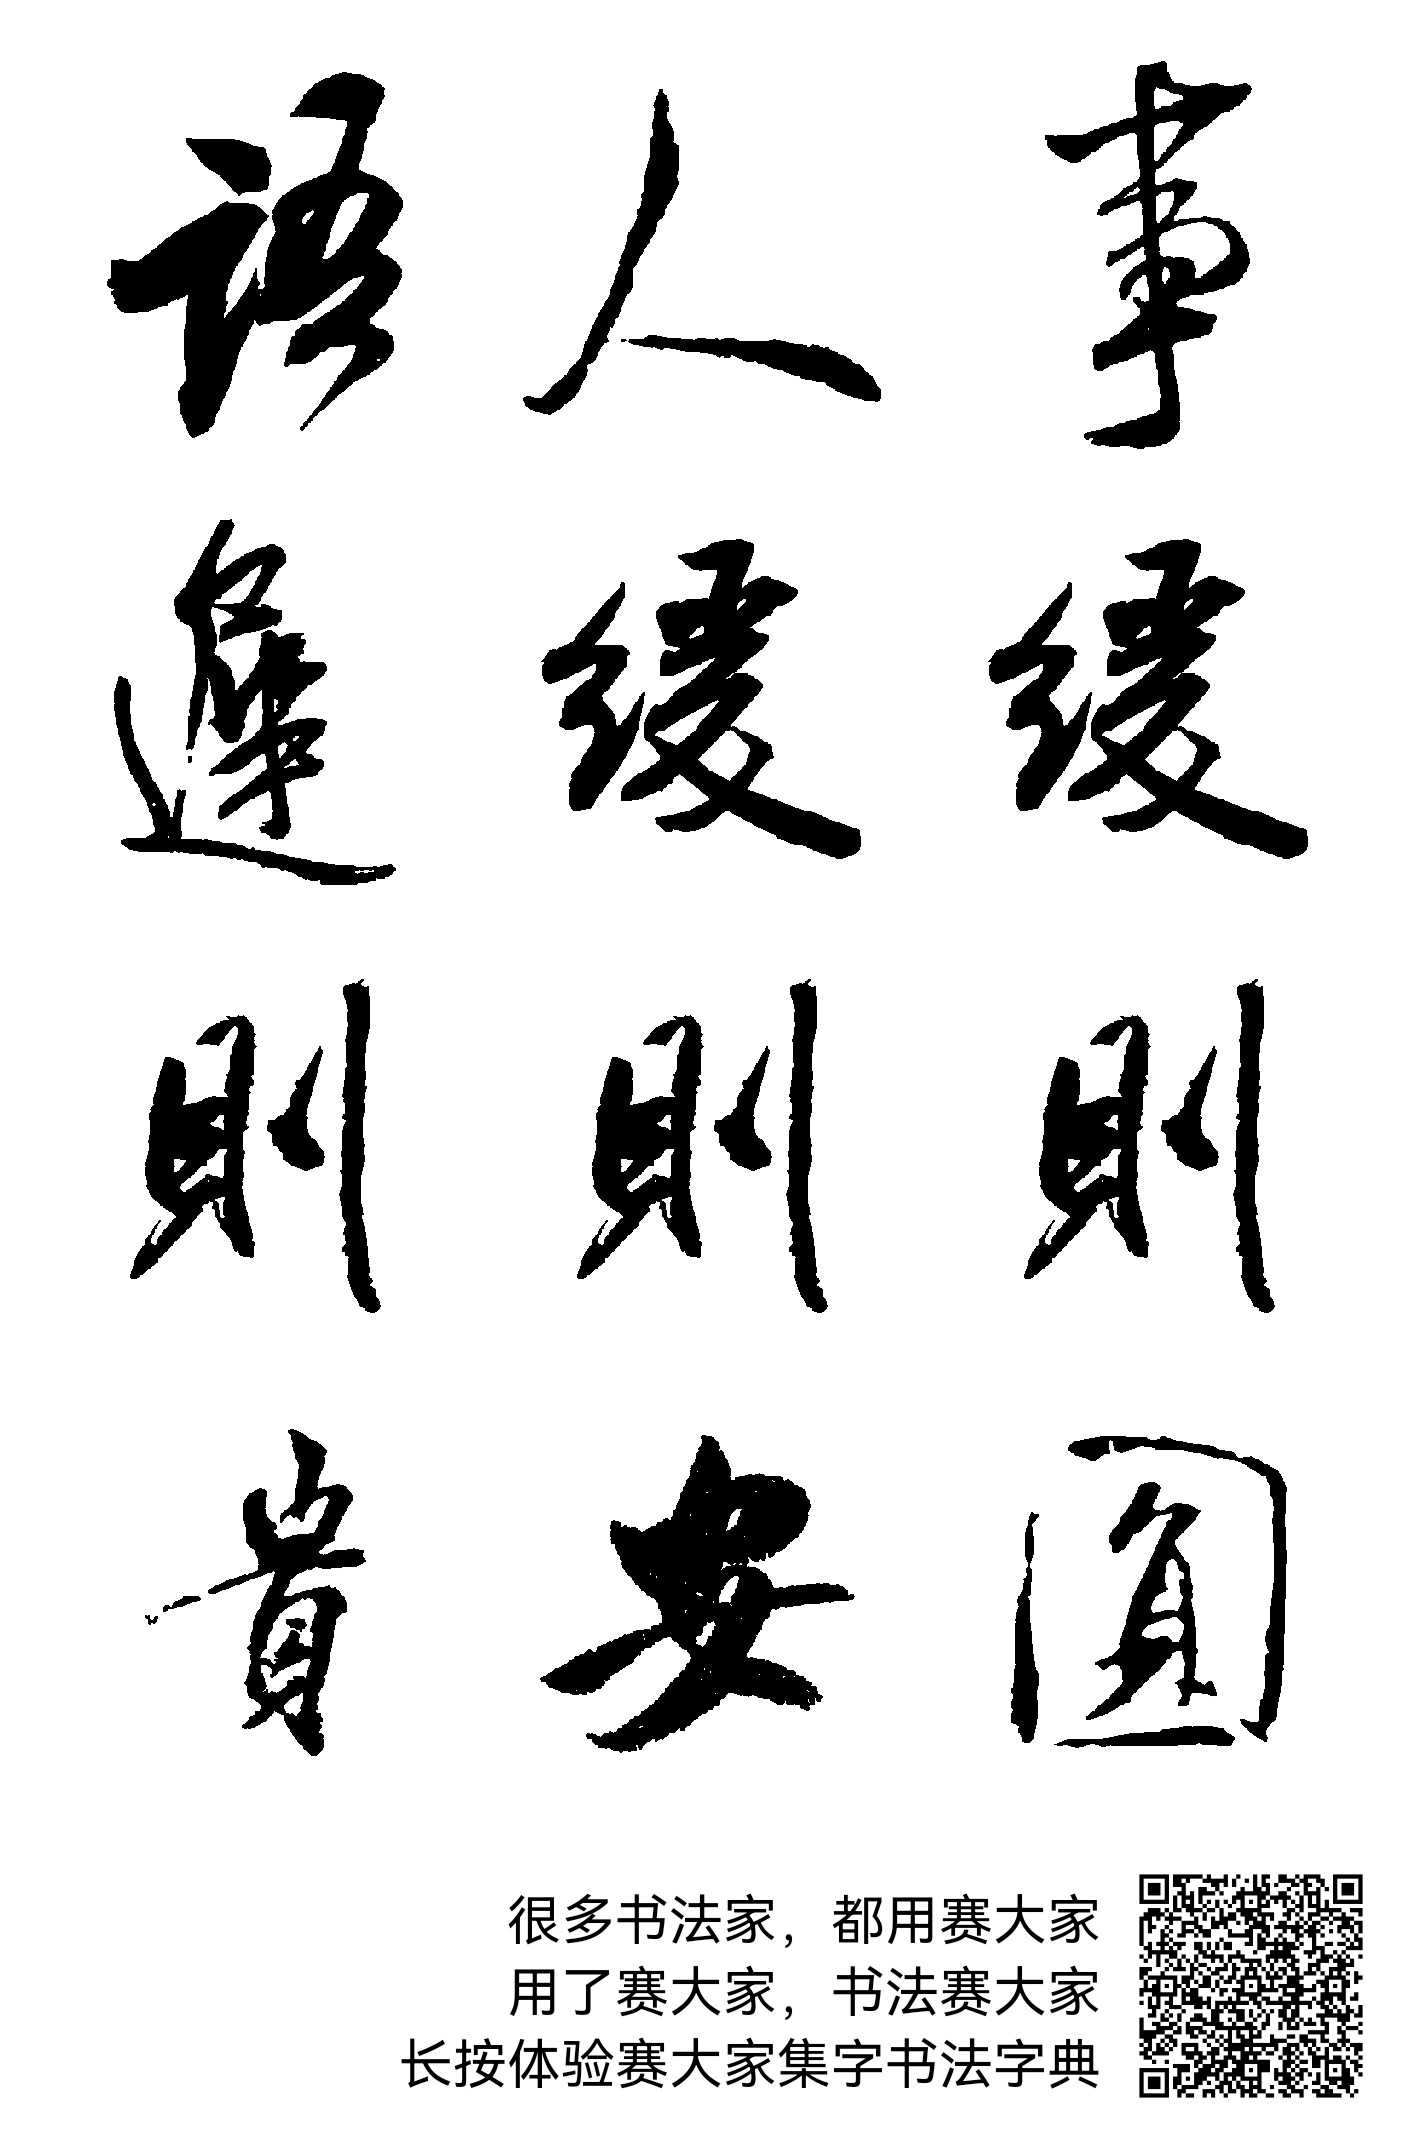 事緩則圓
人緩則安
語遲則貴
很多书法家，都用赛大家
用了赛大家，书法赛大家
长按体验赛大家集字书法字典